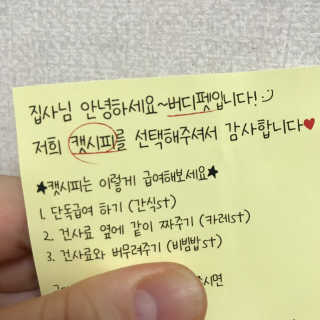 집사님 안녕하세요~버디펫입니다! :)
저희 캣시피를 선택해주셔서 감사합니다♥
★캣시피는 이렇게 급여해보세요★
1. 단독급여 하기 (간식st)
2. 건사료 옆에 같이 짜주기 (카레st)
3. 건사료와 버무려주기 (비빔밥st)